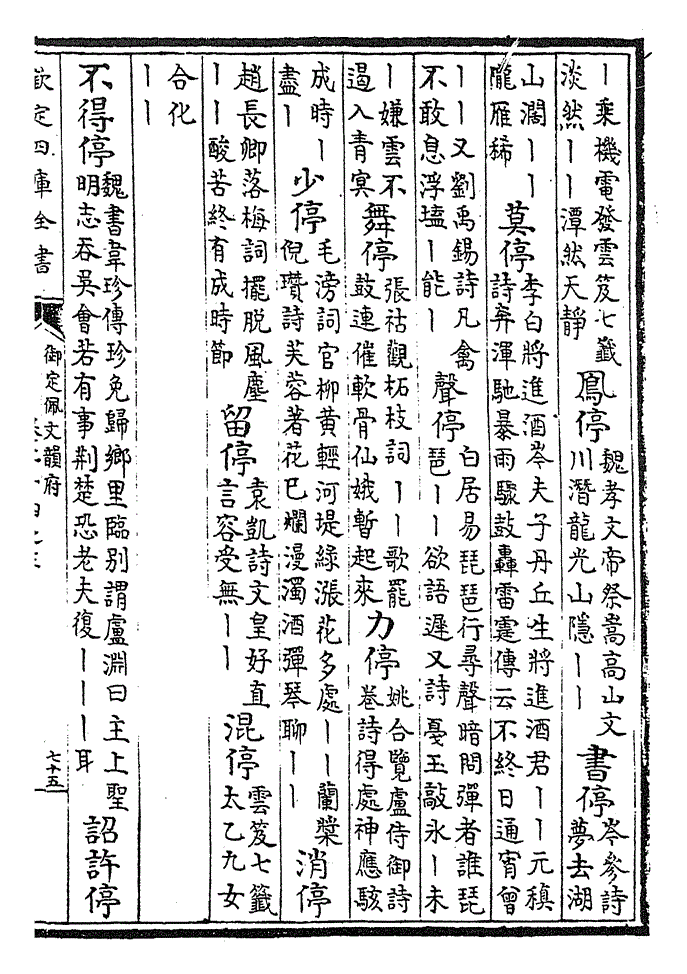 丨乗機電發雲笈七籖
淡然丨丨潭然天靜
鳯停
魏孝文帝祭嵩高山文
川潛龍光山隱丨丨
書停
岑參詩
夢去湖
山濶丨丨
隴雁稀
莫停
李白將進酒岑夫子丹丘生將進酒君丨丨元稹
詩奔渾馳暴雨驟鼓轟雷霆傳云不終日通宵曽
丨丨又劉禹錫詩凡禽
不敢息浮𡏖丨能丨
聲停
白居易琵琶行尋聲暗問彈者誰琵
琶丨丨欲語遲又詩戞玉敲氷丨未
丨嫌雲不
遏入青㝠
舞停
張祜觀柘枝詞丨丨歌罷
鼓連催軟骨仙娥暫起來
力停
姚合覽盧侍御詩
巻詩得處神應駭
成時丨
盡丨
少停
毛滂詞官柳黄輕河堤緑漲花多處丨丨蘭槳
倪瓚詩芙蓉著花已爛漫濁酒彈琴聊丨丨
消停
趙長卿落梅詞擺脫風塵
丨丨酸苦終有成時節
留停
袁凱詩文皇好直
言容受無丨丨
混停
雲笈七籖
太乙九女
合化
丨丨
不得停
魏書韋珍傳珍免歸鄉里臨别謂盧淵曰主上聖
明志吞吳會若有事荆楚恐老夫復丨丨丨耳
詔許停
欽定四庫全書
御定佩文韻府
七十五